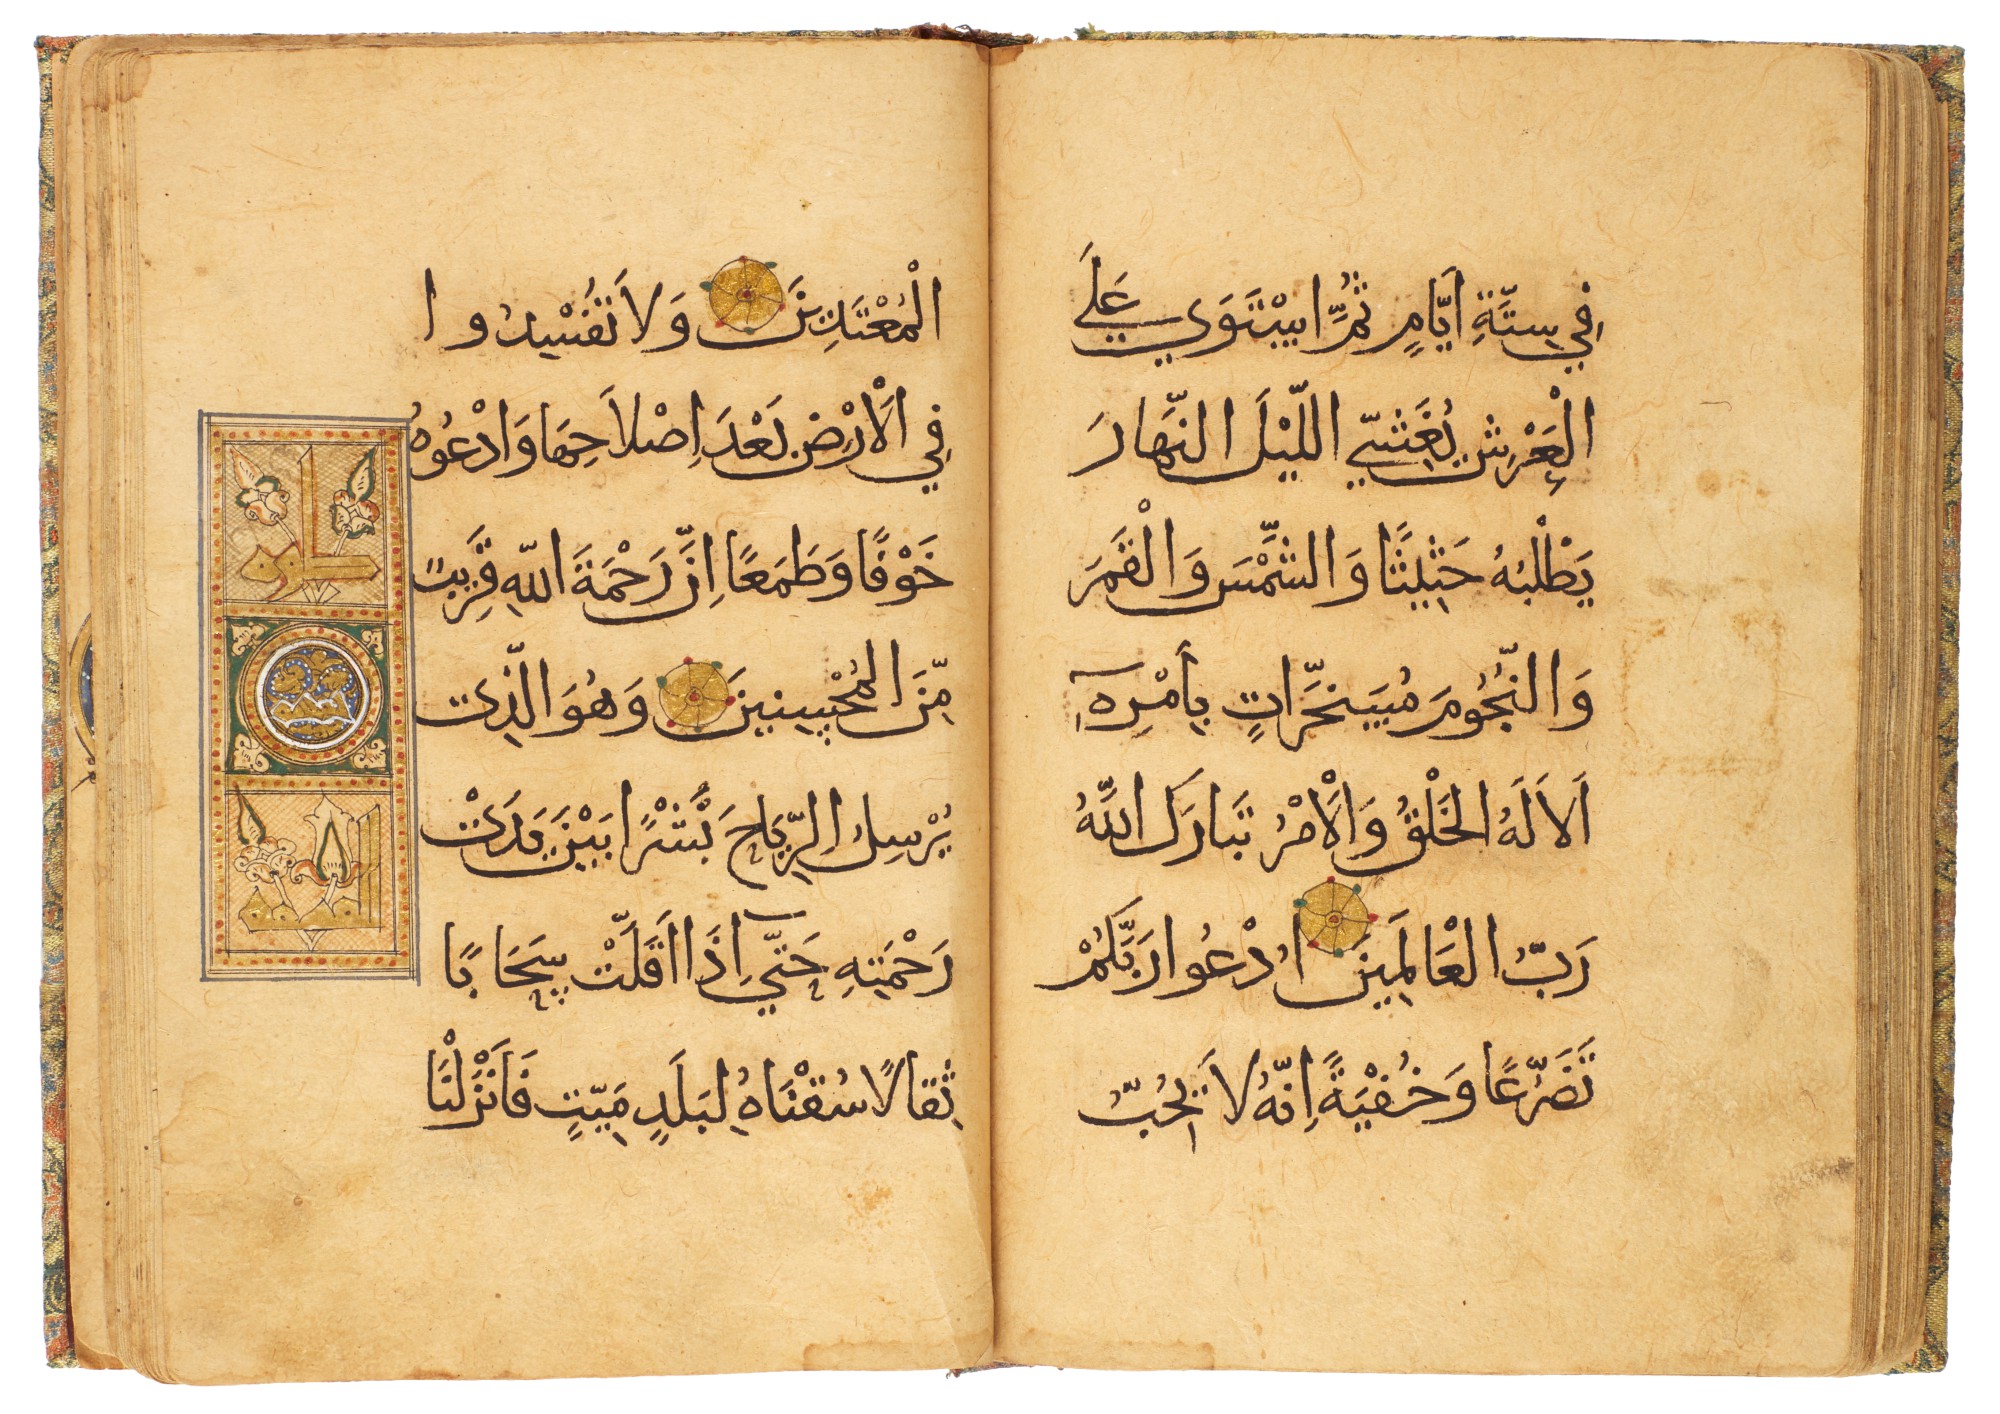 فِي سِتَّةِ اَيَّامٍ ثُمَّ اسْتَوَي عَلَي
الْعَرْشِ يُغَشِّي اللَّيْلَ النَّهَارَ
يَطْلُبُهُ حَثِيثًا وَالشَّمْسَ وَالْقَمَرَ
وَالنُّجُومَ مُسَخَّرَاتٍ بِأَمْرِهِ
اَلاَ لَهُ الخَلْقُ وَالْاَمْرُ تَبَارَكَ اللَّهُ
رَبُّ الْعَالَمِينَ اُدْعُوا رَبَّكُمْ
تَضَرُّعًا وَخُفْيَةً اِنَّهُ لاَ يُحِبُّ
الْمُعْتَدِينَ وَلاَ تُفْسِدُوا
فِي الْاَرْضِ بَعْدَ اِصْلاَحِهَا وَادْعُوهُ
خَوْفًا وَطَمَعًا اِنَّ رَحْمَةَ اللّهِ قَرِيبٌ
مِّنَ الْمُحْسِنِينَ وَهُوَ الَّذِي
يُرْسِلُ الرِّيَاحَ نُشْرًا بَيْنَ يَدَيْ
رَحْمَتِهِ حَتَّي اِذَا اَقَلَّتْ سَحَابًا
ثِقَالًا سُقْنَاهُ لِبَلَدٍ مَيِّتٍ فَاَنْزَلْنَا